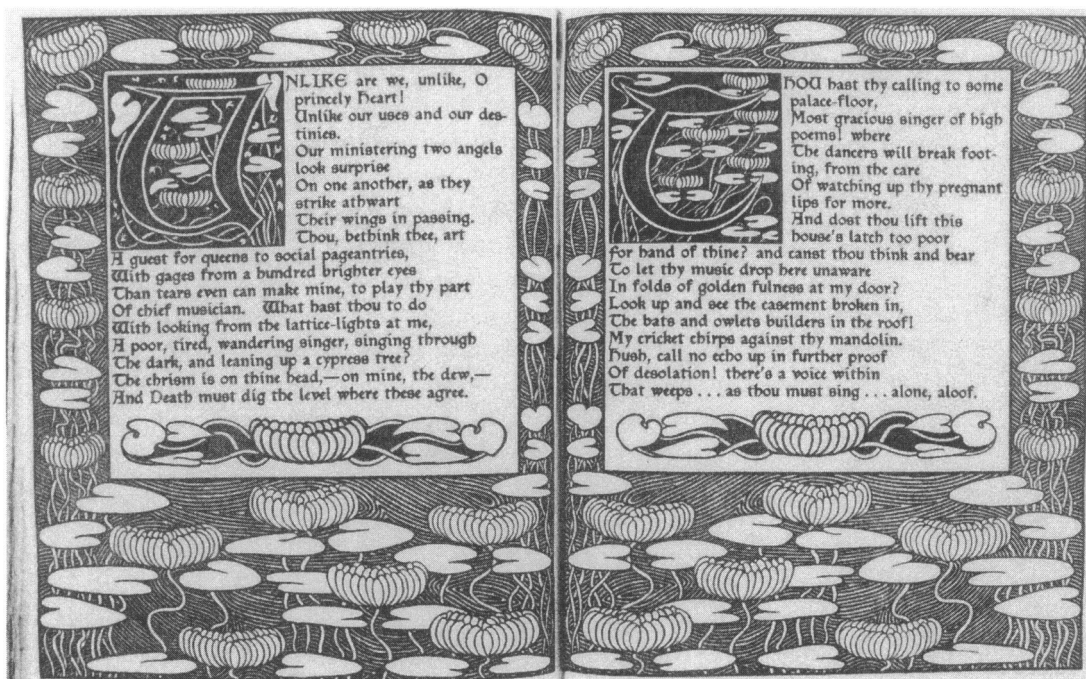 UNLIKE are we, unlike, O
princely heart!
Unlike our uses and our des-
tinies.
Our ministering two angels
look surprise
On one another, as they
strike athwart
Their wings in passing.
Thou, bethink thee, art
A guest for queens to social pageantries,
With gages from a hundred brighter eyes
Than tears even can make mine, to play thy part
Of chief musician. What hast thou to do
With looking from the lattice-lights at me,
A poor, tired, wandering singer, singing through
The dark, and leaning up a cypress tree?
The chrism is on thine head,—on mine, the dew,—
And Death must dig the level where these agree.
THOU hast thy calling to some
palace-floor,
Most gracious singer of high
poems! where
The dancers will break foot-
ing, from the care
Of watching up thy pregnant
lips for more.
And dost thou lift this
house's latch too poor
For hand of thine? and canst thou think and bear
To let thy music drop here unaware
In folds of golden fulness at my door?
Look up and see the casement broken in,
The bats and owlets builders in the roof!
My cricket chirps against thy mandolin.
Hush, call no echo up in further proof
Of desolation! there's a voice within
That weeps . . . as thou must sing . . . alone, aloof.